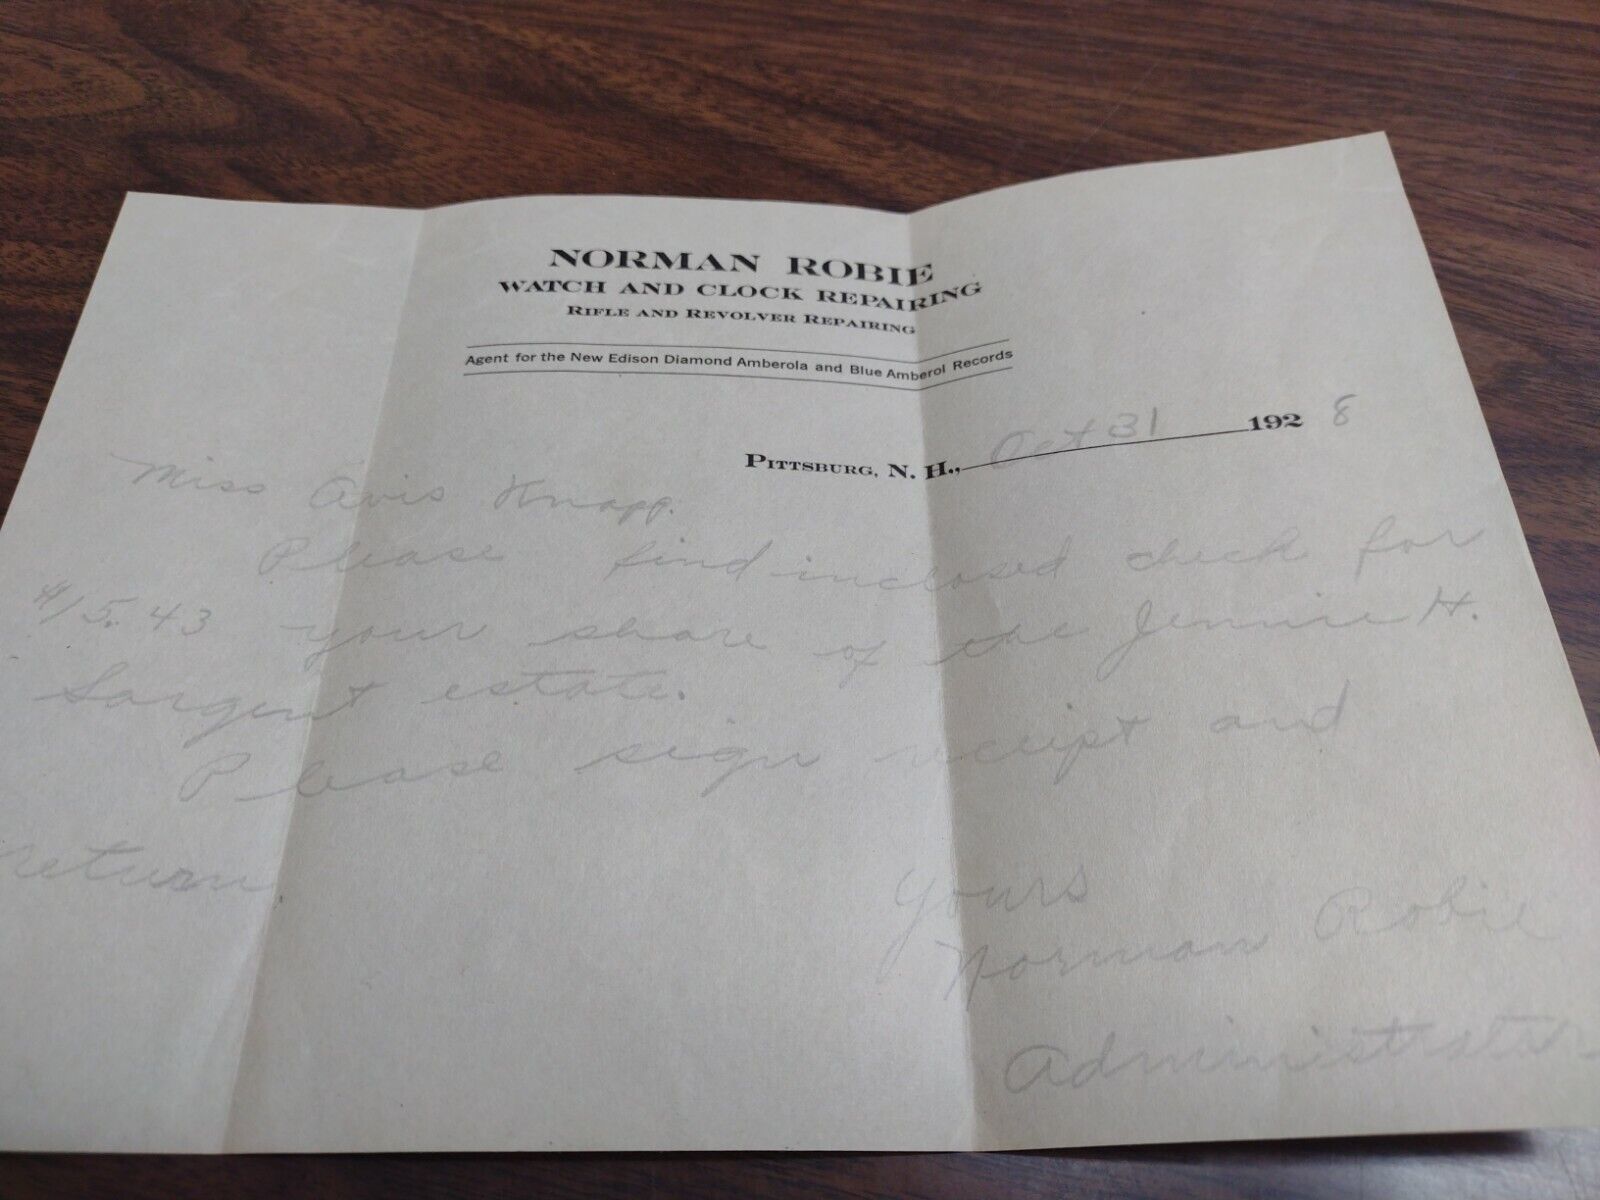 NORMAN ROBIE
WATCH AND CLOCK REPAIRING
RIFLE AND REVOLVER REPAIRING
Agent for the New Edison Diamond Amberola and Blue Amberol Records
PITTSBURG, N. H., Oct 31 1928
Miss Avis Knapp.
Please find inclosed check for
$15.43 your share of the Jennie H.
Sargent estate.
Please sign receipt and
return.
Yours
Norman Robie
Administrator